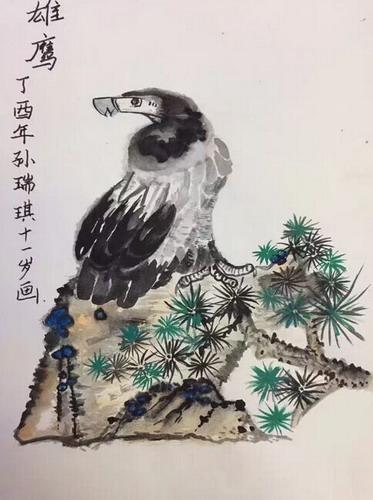 雄鹰
丁酉年孙瑞琪十一岁画